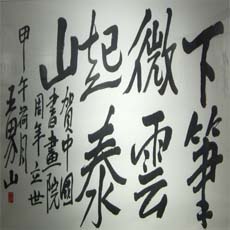 下筆
微雲
起泰
山
賀中國
書畫院
周年立世
甲午荷月
王界山